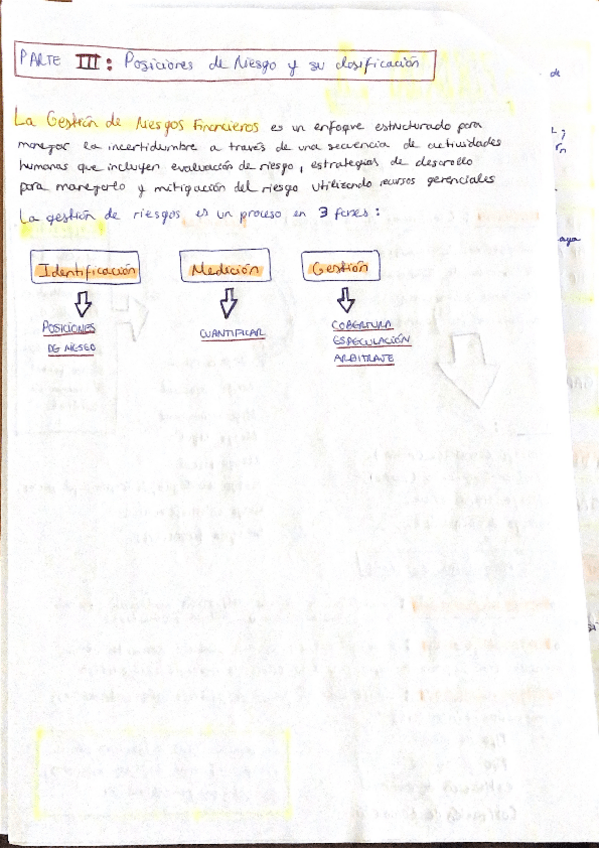 PARTE III: Posiciones de Riesgo y su clasificación
La Gestión de Riesgos Financieros es un enfoque estructurado para
manejar la incertidumbre a través de una secuencia de actividades
humanas que incluyen evaluación de riesgo, estrategias de desarrollo
para manejarlo y mitigación del riesgo utilizando recursos gerenciales
La gestión de riesgos es un proceso en 3 fases:
Identificación Medición Gestión
POSICIONES DE RIESGO
CUANTIFICAR
COBERTURA
ESPECULACIÓN
ARBITRAJE